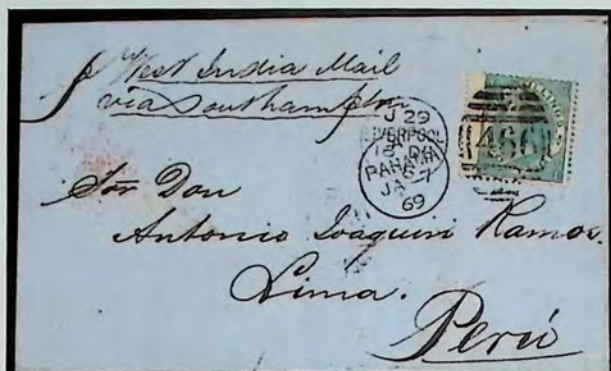 p West India Mail
via Southampton
SHILLING
466
J 29
LIVERPOOL
18 D
PANAMA
JA 7
69
Sor Don
Antonio Joaquin Ramos.
Lima.
Perú